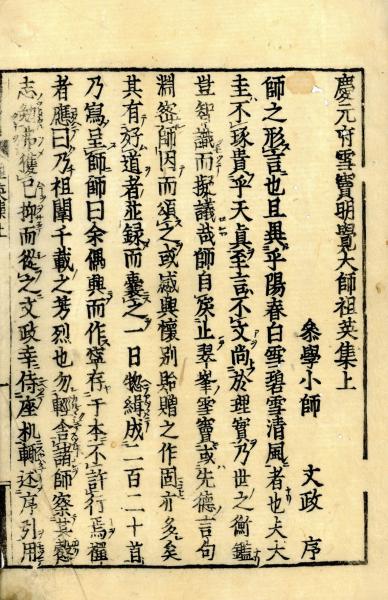 慶元府雪竇明覺大師祖英集上
參學小師　文政　序
師之形言也且異乎陽春白雪碧雲清風者也夫大
圭不琢貴乎天真至言不文尚於理實乃世之衡鑑
豈智識而擬議哉師自戾止翠峯雪竇或先德言句
淵密師因而頌之或感興懷別貽贈之作固亦多矣
其有好道者並録而囊之一日總緝成二百二十首
乃寫呈師師曰余偶興而作寧存于本不許行焉禪
者應曰乃祖闡千載之芳烈也勿輕舍諸師察其懇
志勉弗獲已抑而從之文政幸侍座机輙述序引用